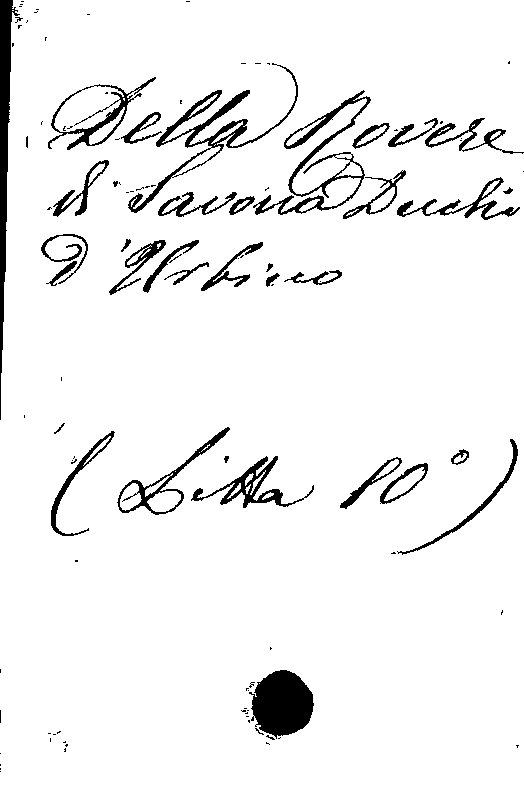 Della Rovere
di Savona Duchi
d'Urbino
(Litta 10°)